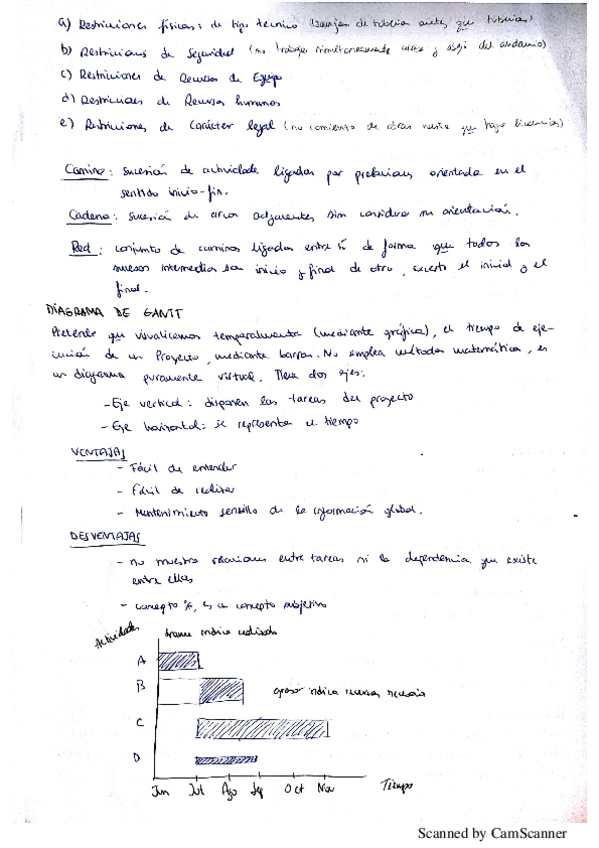 a) Restricciones físicas: de tipo técnico (zanjas de tubería antes que tuberías)
b) Restricciones de Seguridad (no trabajar simultaneamente arriba y abajo del andamio)
c) Restricciones de Recursos de Equipo
d) Restricciones de Recursos humanos
e) Restricciones de Carácter legal (no comienzo de obras hasta que haya licencias)
Camino: sucesión de actividades ligadas por prelaciones orientada en el
sentido inicio-fin.
Cadena: sucesión de arcos adyacentes sin considerar su orientación.
Red: conjunto de caminos ligados entre sí de forma que todos los
sucesos intermedios son inicio y final de otro, excepto el inicial y el
final.
DIAGRAMA DE GANTT
Pretende que visualicemos temporalmente (mediante gráfica), el tiempo de eje-
cución de un Proyecto, mediante barras. No emplea métodos matemáticos, es
un diagrama puramente virtual. Tiene dos ejes:
- Eje vertical: disponen las tareas del proyecto
- Eje horizontal: se representa el tiempo
VENTAJAS
- Fácil de entender
- Fácil de realizar
- Mantenimiento sencillo de la información global.
DESVENTAJAS
- no muestra relaciones entre tareas ni la dependencia que existe
entre ellas
- concepto %, es un concepto subjetivo
Actividades
trama indica realizado
A
B
grosor indica recursos necesarios
C
D
Jun Jul Ago Sep Oct Nov Tiempo
Scanned by CamScanner